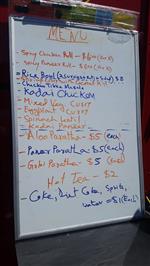 MENU
Spicy Chicken Roll - $6
Spicy Paneer Roll - $
Rice Bowl
Chicken Tikka Masala
Kadai Chicken
Mixed Veg Curry
Eggplant Curry
Spinach Lentil
Kadai Paneer
Aloo Paratha - $5 (each)
Paneer Paratha - $5 (Each)
Gobi Paratha - $5 (Each)
Hot Tea - $2
Coke, Diet Coke, Sprite,
water - $1 (Each)